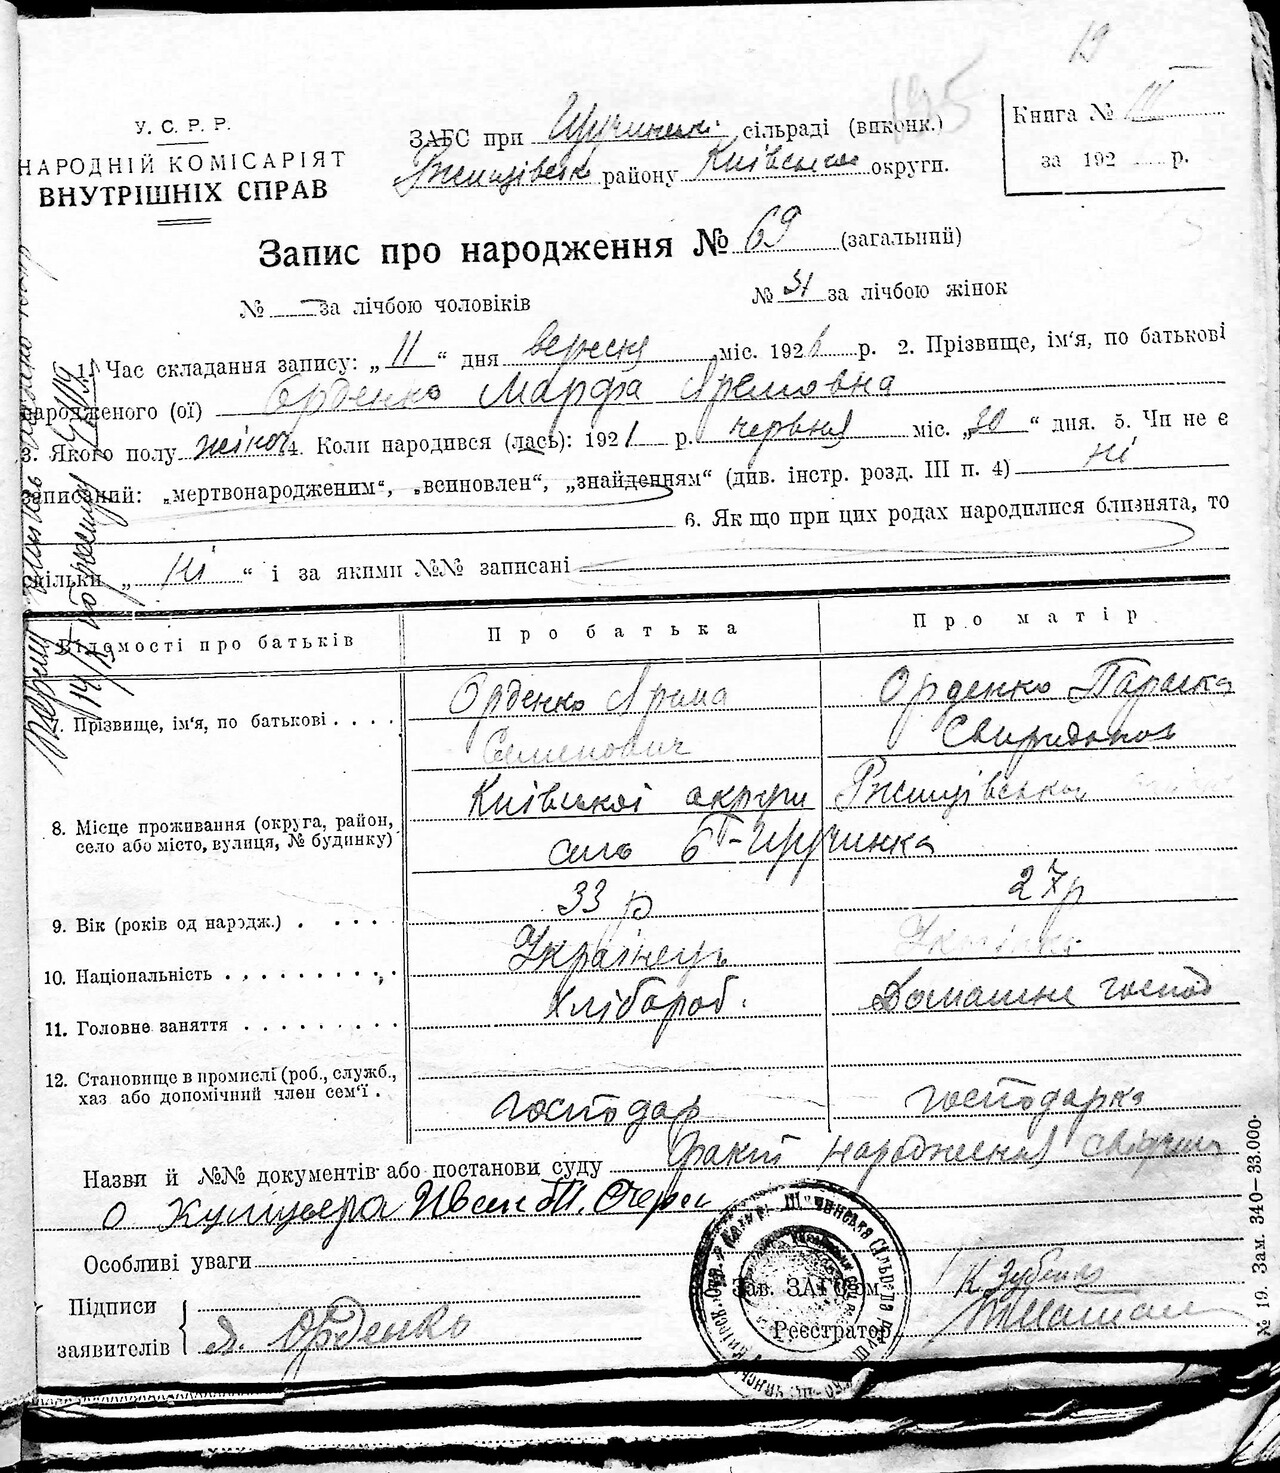 19
195
У. С. Р. Р.
НАРОДНІЙ КОМІСАРІЯТ
ВНУТРІШНІХ СПРАВ
ЗАГС при сільраді (виконк.)
Ржищівськ району Київської округи.
Книга № III
за 192 р.
Запис про народження № 69 (загальний)
№ — за лічбою чоловіків
№ 31 за лічбою жінок
1. Час складання запису: „ 11 “ дня вересня міс. 1926 р. 2. Прізвище, ім‘я, по батькові
народженого (ої) Орденко Марфа Яремовна
3. Якого полу жіноч 4. Коли народився (лась): 1921 р. червня міс. „30“ дня. 5. Чи не є
записаний: „мертвонародженим“, „всиновлен“, „знайденням“ (див. інстр. розд. III п. 4) ні
6. Як що при цих родах народилися близнята, то
скільки „ ні “ і за якими №№ записані
Відомості про батьків
Про батька
Про матір
7. Прізвище, ім‘я, по батькові . . . .
Орденко Ярема
Семенович
Орденко Параска
Свиридонов
8. Місце проживання (округа, район,
село або місто, вулиця, № будинку)
Київської округи Ржищівського
село Б-
9. Вік (років од народж.) . . . . .
33 р
27 р
10. Національність . . . . . . . . . .
Українець
11. Головне заняття . . . . . . . . .
Хлібороб.
Домашне господ
12. Становище в промислі (роб., служб.,
хаз або допомічний член сем‘ї .
господар
господарка
Назви й №№ документів або постанови суду Факт народження свідчать
Особливі уваги
Підписи
заявителів
Я. Орденко
Зав. ЗАГС‘ом
К. Зубенко
Реєстратор
№ 19. Зам. 340—33.000.